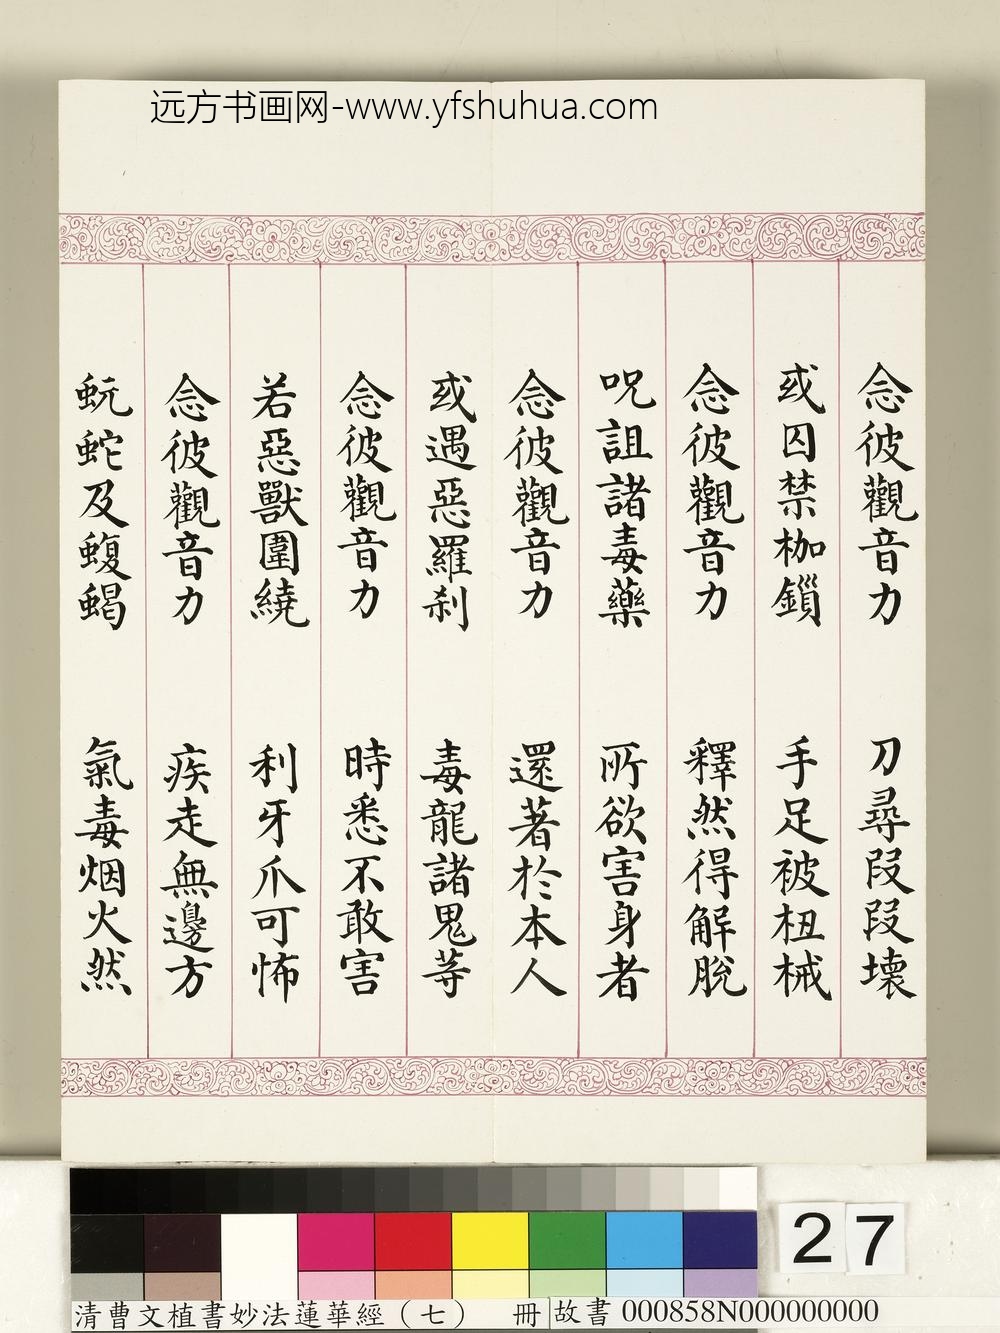 远方书画网-www.yfshuhua.com
念彼觀音力 刀尋段段壞
或囚禁枷鎻 手足被杻械
念彼觀音力 釋然得解脫
呪詛諸毒藥 所欲害身者
念彼觀音力 還著於本人
或遇惡羅刹 毒龍諸鬼等
念彼觀音力 時悉不敢害
若惡獸圍繞 利牙爪可怖
念彼觀音力 疾走無邊方
蚖蛇及蝮蝎 氣毒烟火然
27
清曹文植書妙法蓮華經（七） 冊 故書 000858N000000000